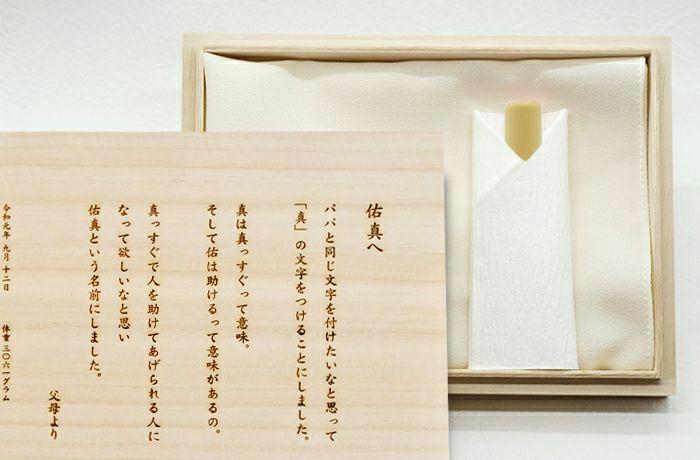 佑真へ
パパと同じ文字を付けたいなと思って
「真」の文字をつけることにしました。
真は真っすぐって意味。
そして佑は助けるって意味があるの。
真っすぐで人を助けてあげられる人に
なって欲しいなと思い
佑真という名前にしました。
父母より
令和元年 九月 十二日 体重 三〇六一グラム